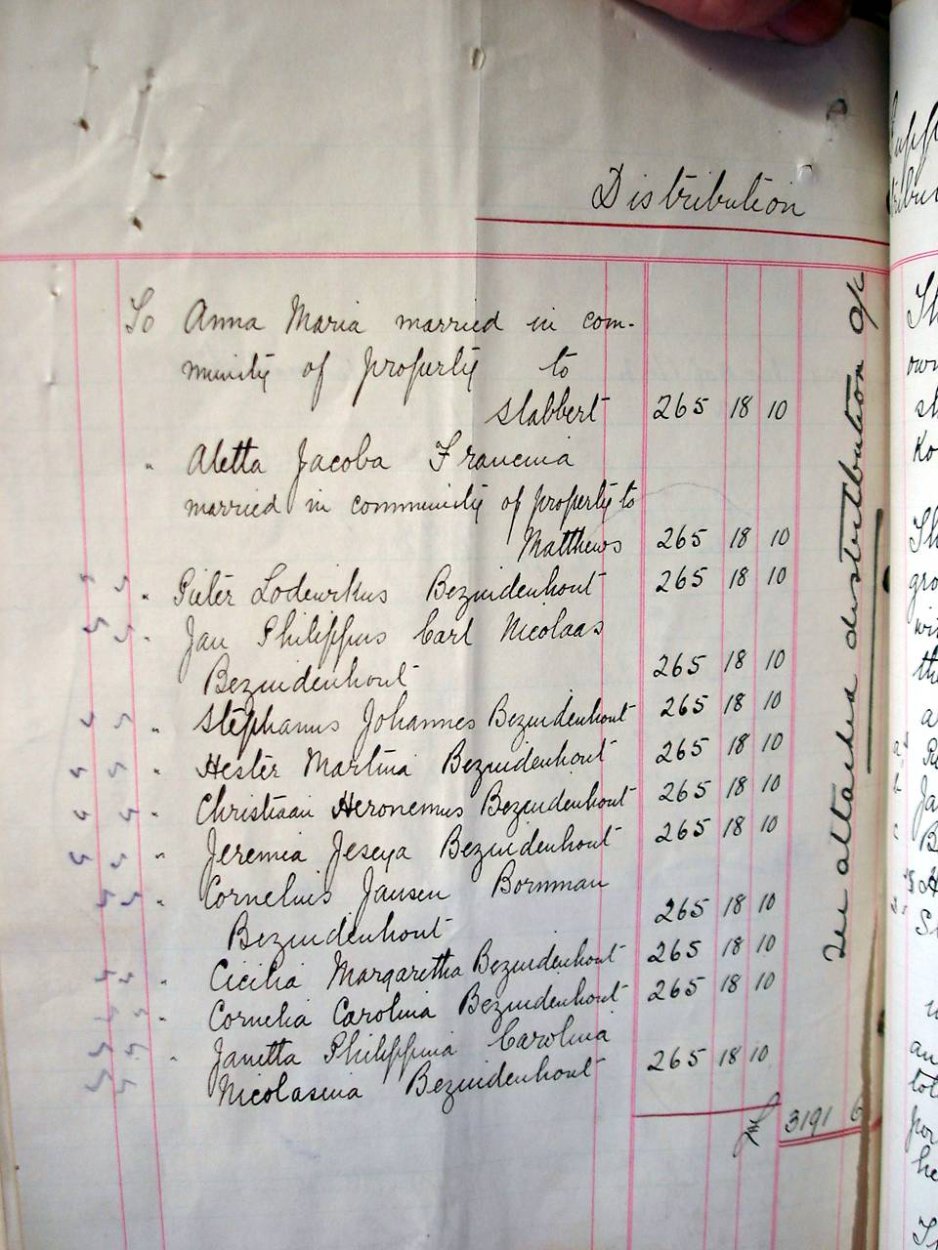 Distribution
To Anna Maria married in com-
munity of property to
Slabbert 265 18 10
" Aletta Jacoba Francina
married in community of property to
Matthews 265 18 10
" Pieter Lodewikus Bezuidenhout 265 18 10
" Jan Philippus Carl Nicolaas
Bezuidenhout 265 18 10
" Stephanus Johannes Bezuidenhout 265 18 10
" Hester Martina Bezuidenhout 265 18 10
" Christiaan Heronemus Bezuidenhout 265 18 10
" Jeremia Jeseya Bezuidenhout 265 18 10
" Cornelius Jansen Bornman
Bezuidenhout 265 18 10
" Cicilia Margaretha Bezuidenhout 265 18 10
" Cornelia Carolina Bezuidenhout 265 18 10
" Janitta Philippina Carolina
Nicolasina Bezuidenhout 265 18 10
3191 6
See attached distribution a/c